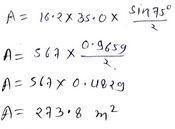 A = 16.2 × 35.0 × sin75°/2
A = 567 × 0.9659/2
A = 567 × 0.4829
A = 273.8 m²